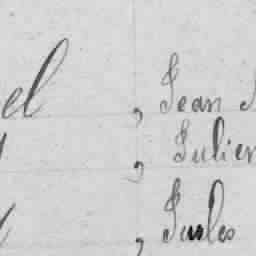 el , Jean
, Julien
, Jules